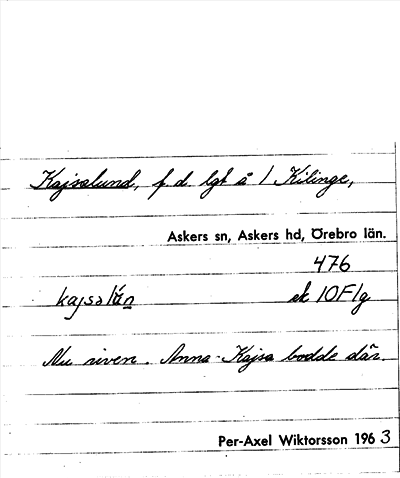 Kajsalund, f.d. lgt å 1 Kilinge,
Askers sn, Askers hd, Örebro län.
476
kajsalùn ek 10F1g
Nu riven. Anna-Kajsa bodde där.
Per-Axel Wiktorsson 1963